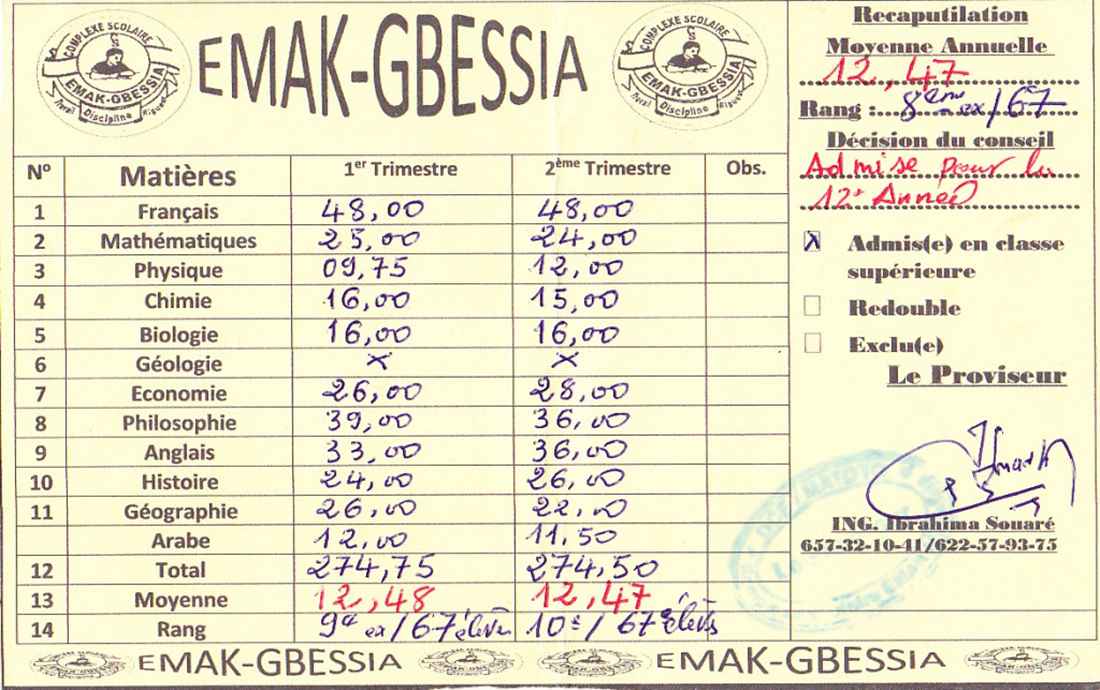 COMPLEXE SCOLAIRE
EMAK-GBESSIA
Discipline
EMAK-GBESSIA
COMPLEXE SCOLAIRE
EMAK-GBESSIA
Discipline
N° Matières 1er Trimestre 2ème Trimestre Obs.
1 Français 48,00 48,00
2 Mathématiques 25,00 24,00
3 Physique 09,75 12,00
4 Chimie 16,00 15,00
5 Biologie 16,00 16,00
6 Géologie x x
7 Economie 26,00 28,00
8 Philosophie 39,00 36,00
9 Anglais 33,00 36,00
10 Histoire 24,00 26,00
11 Géographie 26,00 22,00
Arabe 12,00 11,50
12 Total 274,75 274,50
13 Moyenne 12,48 12,47
14 Rang 9e ex/67 élèves 10e/67 élèves
EMAK-GBESSIA EMAK-GBESSIA
Recaputilation
Moyenne Annuelle
12,47
Rang : 8ème ex/67
Décision du conseil
Admise pour la
12e Année
X Admis(e) en classe
supérieure
Redouble
Exclu(e)
Le Proviseur
ING. Ibrahima Souaré
657-32-10-41/622-57-93-75